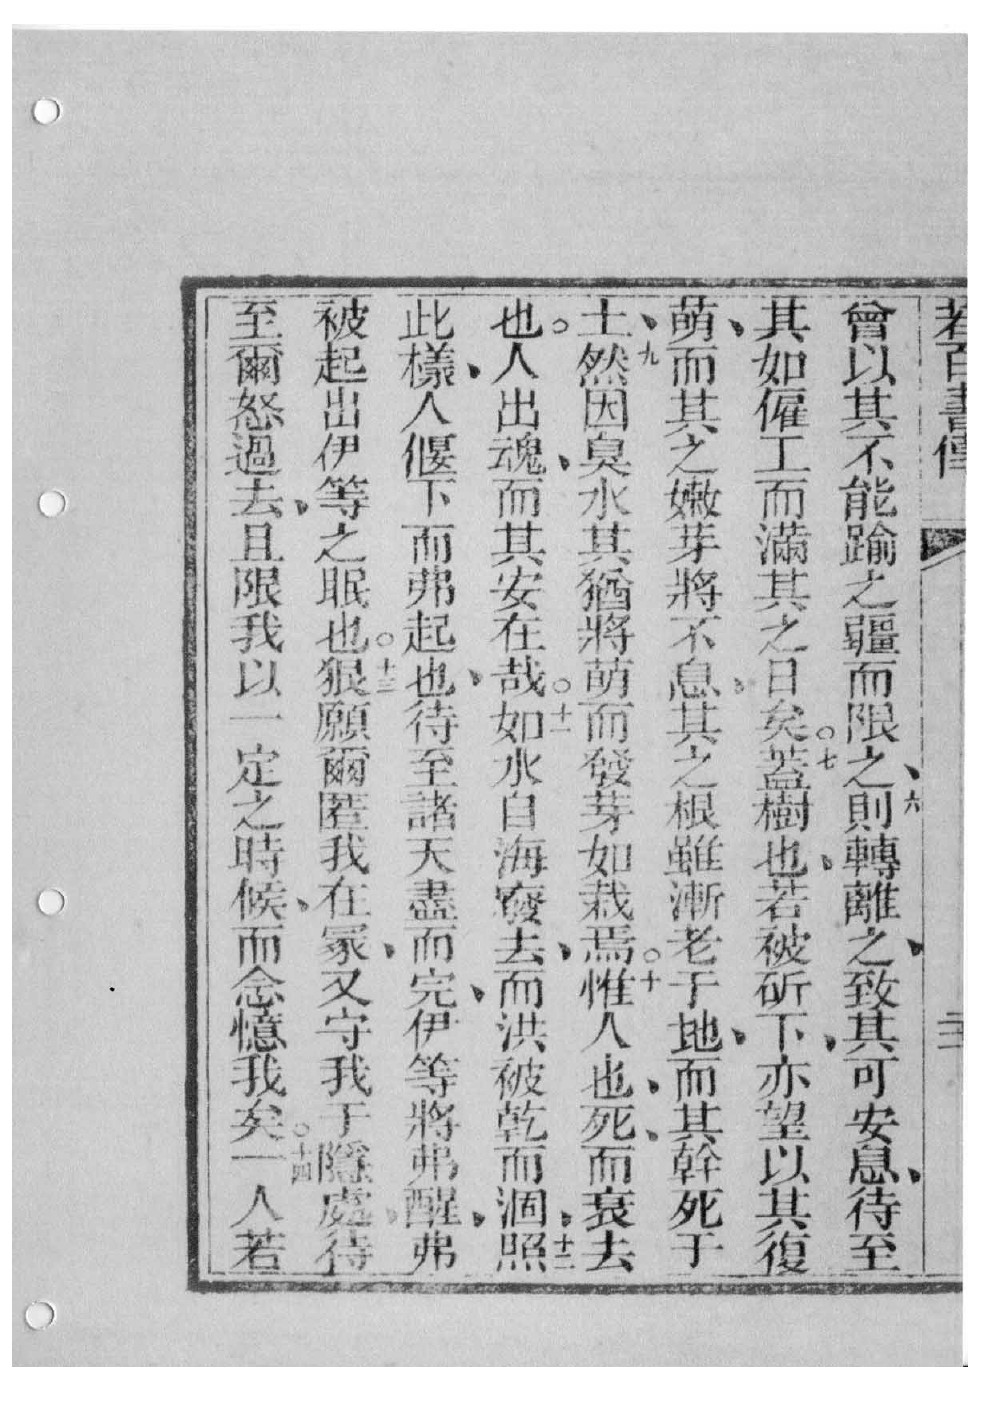 若百書傳
二十
曾以其不能踰之疆而限之、六則轉離之、致其可安息、待至
其如僱工而滿其之日矣。七葢樹也、若被斫下、亦望以其復
萌、而其之嫩芽將不息、其之根雖漸老于地、而其幹死于
土、九然因臭水其猶將萌而發芽如栽焉。十惟人也、死、而衰去
也。人出魂、而其安在哉。十一如水自海廢去、而洪被乾而涸、十二照
此樣、人偃下而弗起也、待至諸天盡而完、伊等將弗醒、弗
被起出伊等之眠也。十三狠願爾匿我在冢、又守我于隱處、待
至爾怒過去、且限我以一定之時候、而念憶我矣。十四一人若